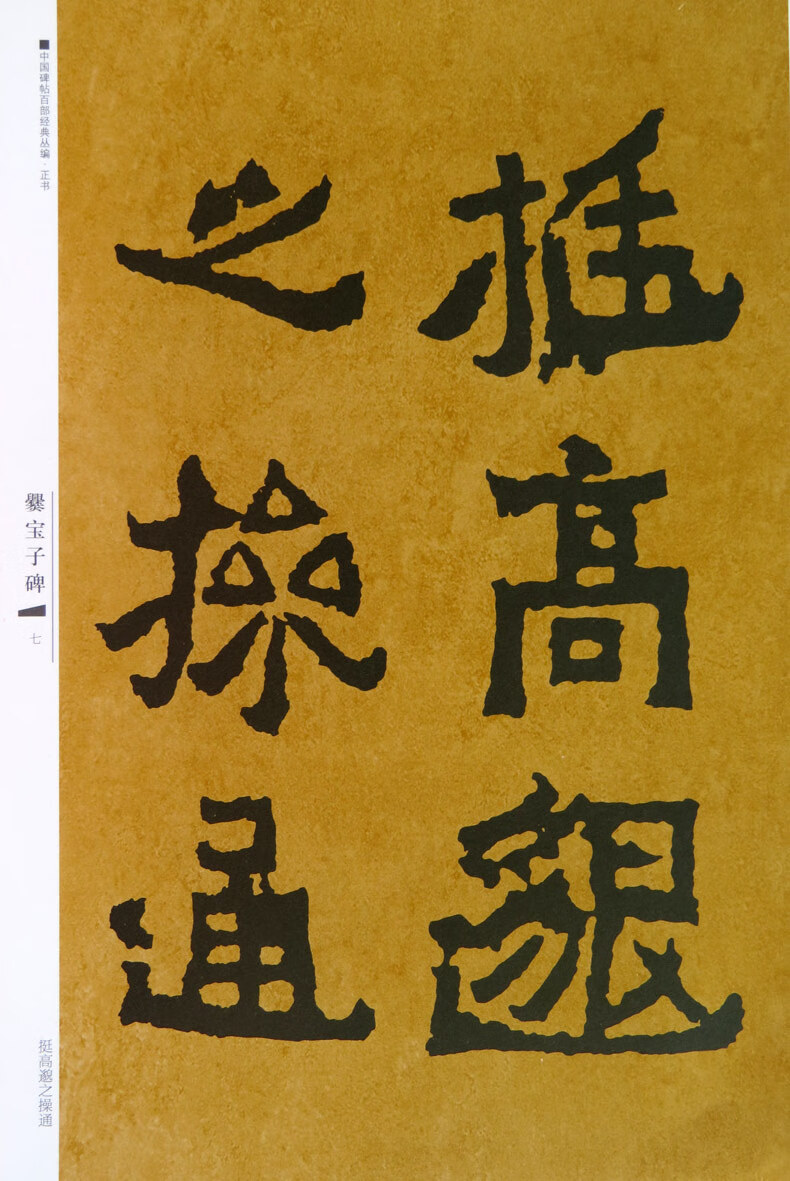 挺高邈
之操通
中国碑帖百部经典丛编·正书
爨宝子碑
七
挺高邈之操通